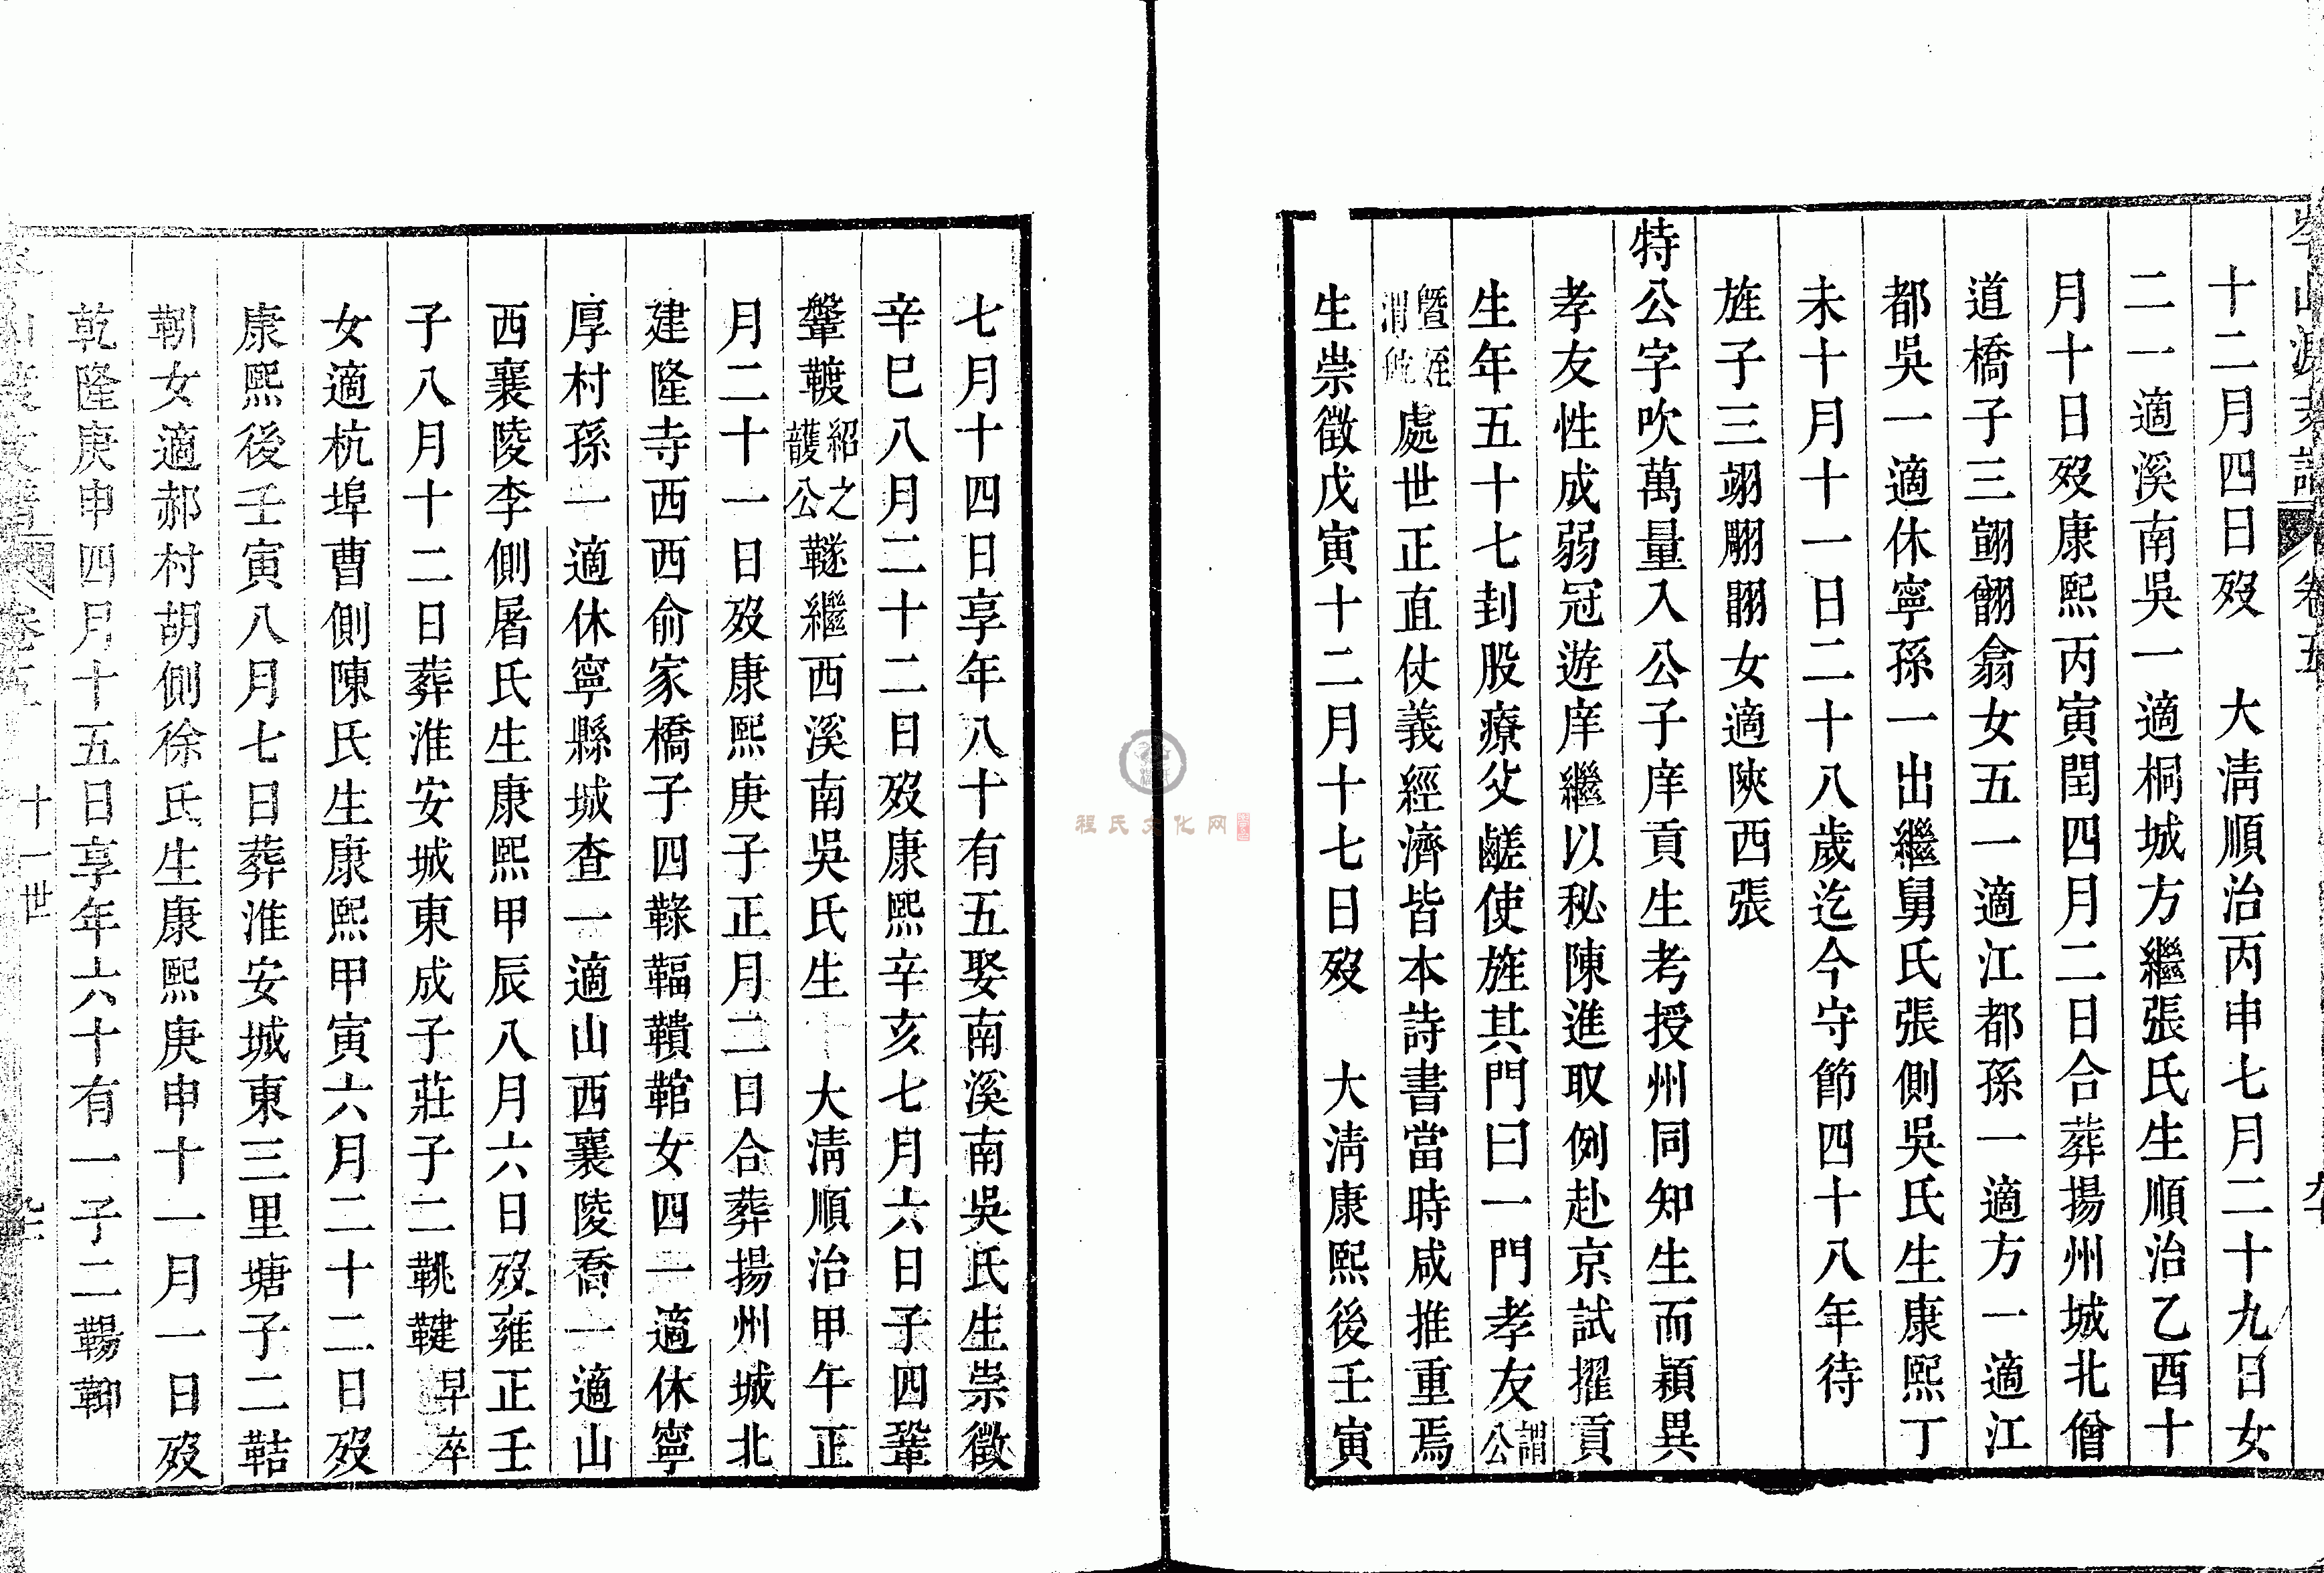 十二月四日歿 大淸順治丙申七月二十九日女
二一適溪南吳一適桐城方繼張氏生順治乙酉十
月十日歿康熙丙寅閏四月二日合葬揚州城北僧
道橋子三翧翻翕女五一適江都孫一適方一適江
都吳一適休寧孫一出繼舅氏張側吳氏生康熙丁
未十月十一日二十八歲迄今守節四十八年待
旌子三翊翢翮女適陝西張
特公字吹萬量入公子庠貢生考授州同知生而穎異
孝友性成弱冠遊庠繼以秘陳進取例赴京試擢貢
生年五十七刲股療父鹺使旌其門曰一門孝友謂公
暨姪渭處世正直仗義經濟皆本詩書當時咸推重焉
生崇徵戊寅十二月十七日歿 大淸康熙後壬寅
七月十四日享年八十有五娶南溪南吳氏生崇徵
辛巳八月二十二日歿康熙辛亥七月六日子四鞏
鞶韄紹之頀公鞢繼西溪南吳氏生 大淸順治甲午正
月二十一日歿康熙庚子正月二日合葬揚州城北
建隆寺西西俞家橋子四䩮鞴鞼䩪女四一適休寧
厚村孫一適休寧縣城查一適山西襄陵喬一適山
西襄陵李側屠氏生康熙甲辰八月六日歿雍正壬
子八月十二日葬淮安城東成子莊子二鞉鞬早卒
女適杭埠曹側陳氏生康熙甲寅六月二十二日歿
康熙後壬寅八月七日葬淮安城東三里塘子二鞊
靷女適郝村胡側徐氏生康熙庚申十一月一日歿
乾隆庚申四月十五日享年六十有一子二
卷五
十一世
程氏文化网